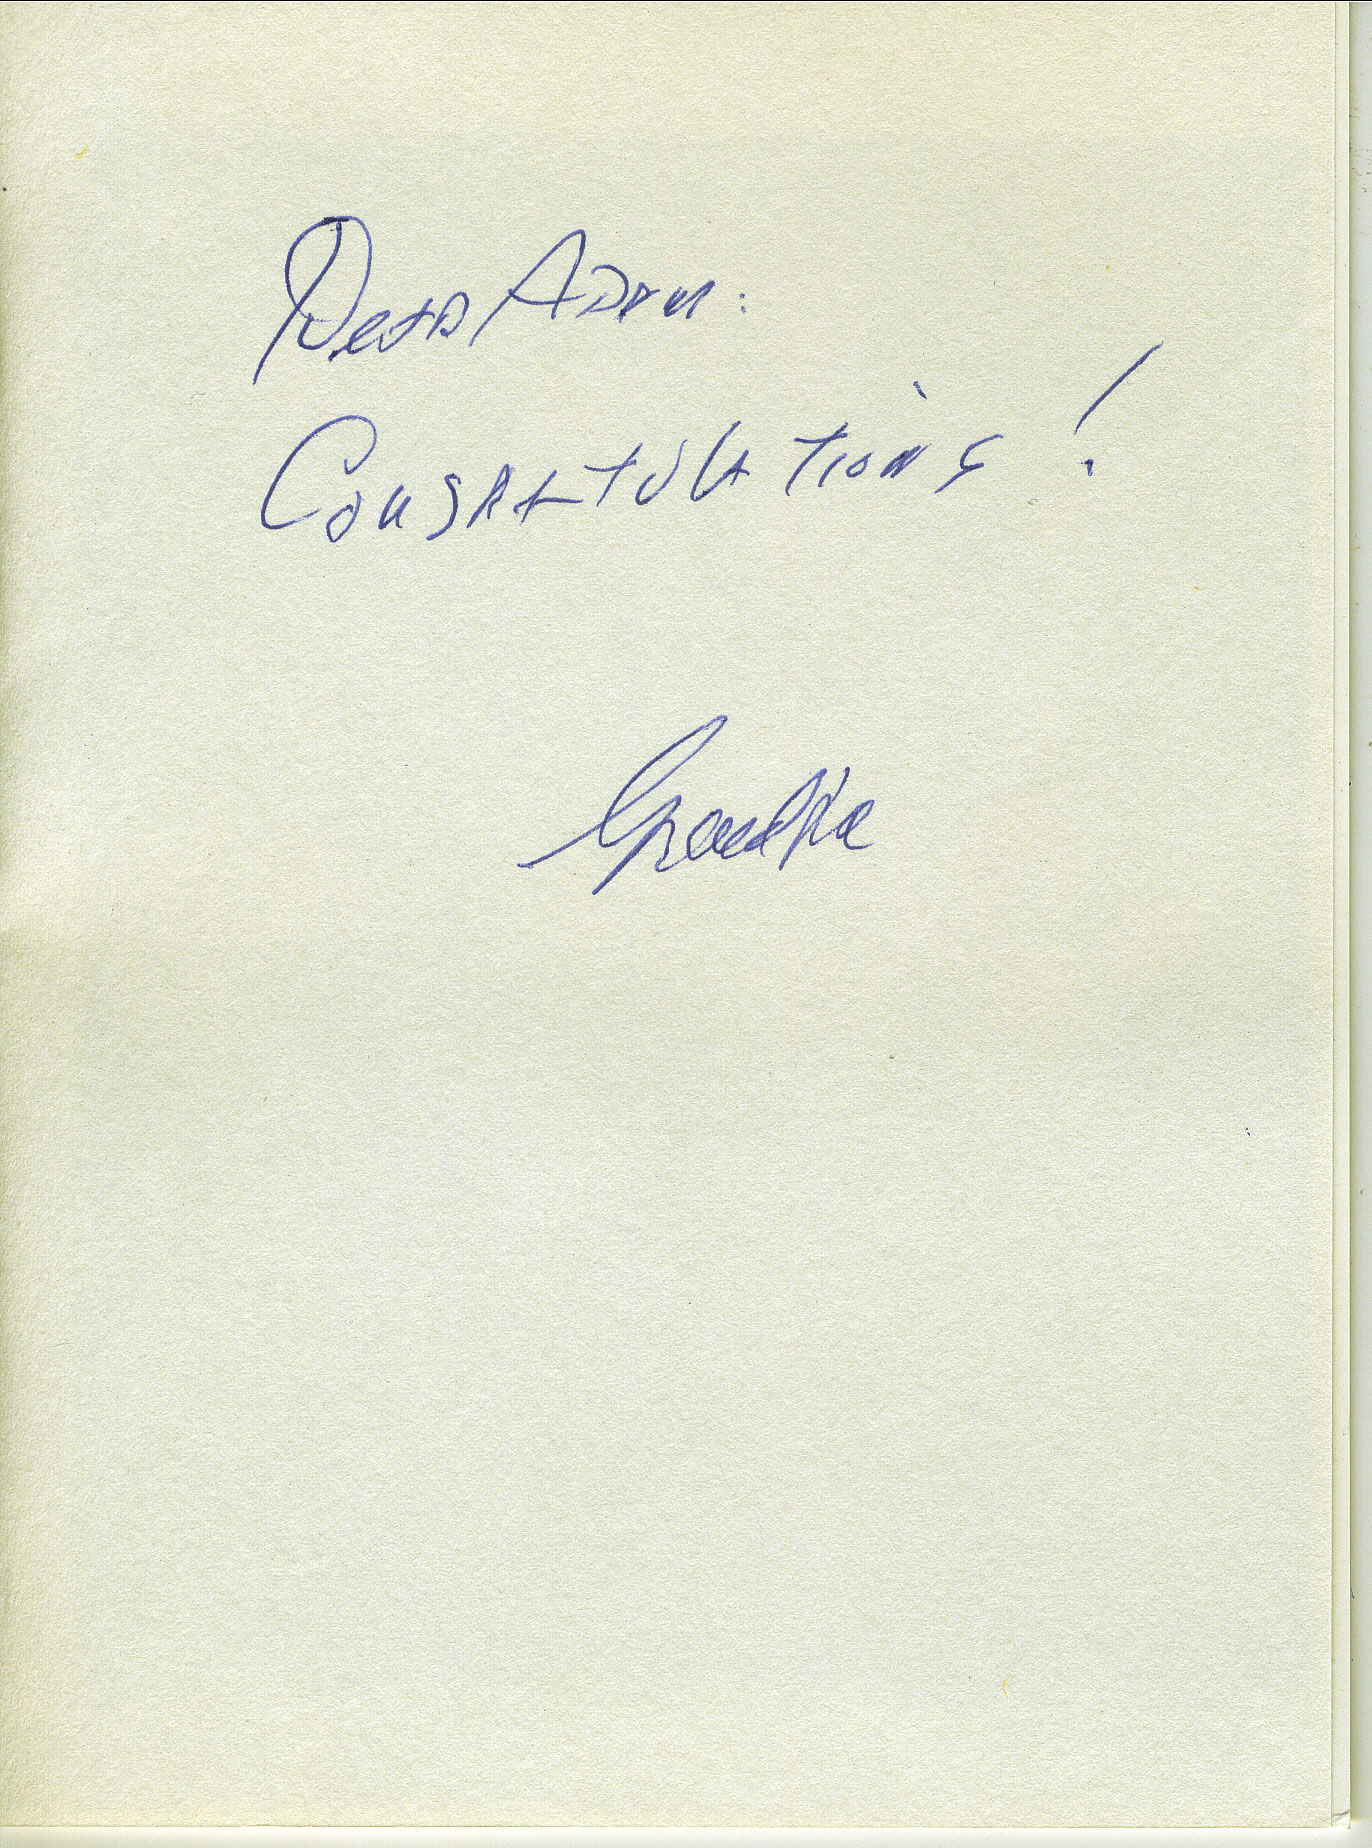 Dear Adam:
Congratulations!
Grandpa